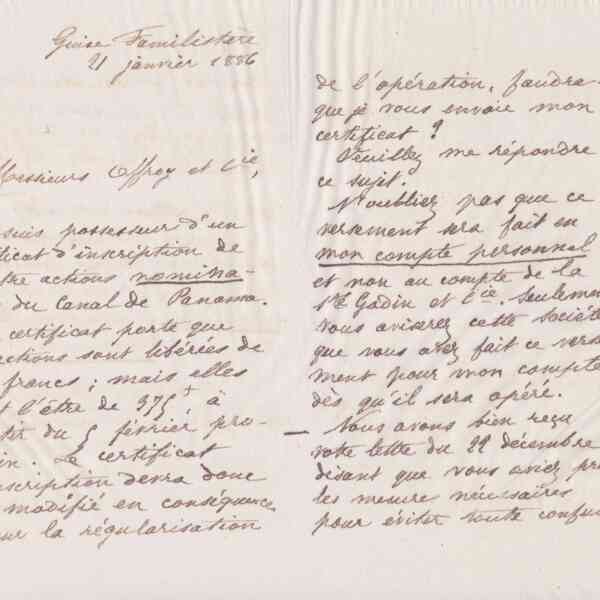 Guise Familistère
21 janvier 1886
Messieurs Offroy et Cie,
suis possesseur d'un
ificat d'inscription de
tre actions nomina-
du Canal de Panama.
certificat porte que
actions sont libérées de
francs ; mais elles
t l'être de 375 f à
tir du 5 février pro-
in. Le certificat
nscription devra donc
modifié en conséquence
ur la régularisation
de l'opération, faudra-
que je vous envoie mon
certificat ?
Veuillez me répondre
ce sujet.
N'oubliez pas que ce
versement sera fait en
mon compte personnel
et non au compte de la
Sté Godin et Cie. Seulement
vous aviserez cette société
que vous avez fait ce verse
ment pour mon compte
dès qu'il sera opéré.
— Nous avons bien reçu
votre lettre du 22 décembre
disant que vous aviez pri
les mesure nécessaires
pour éviter toute confus